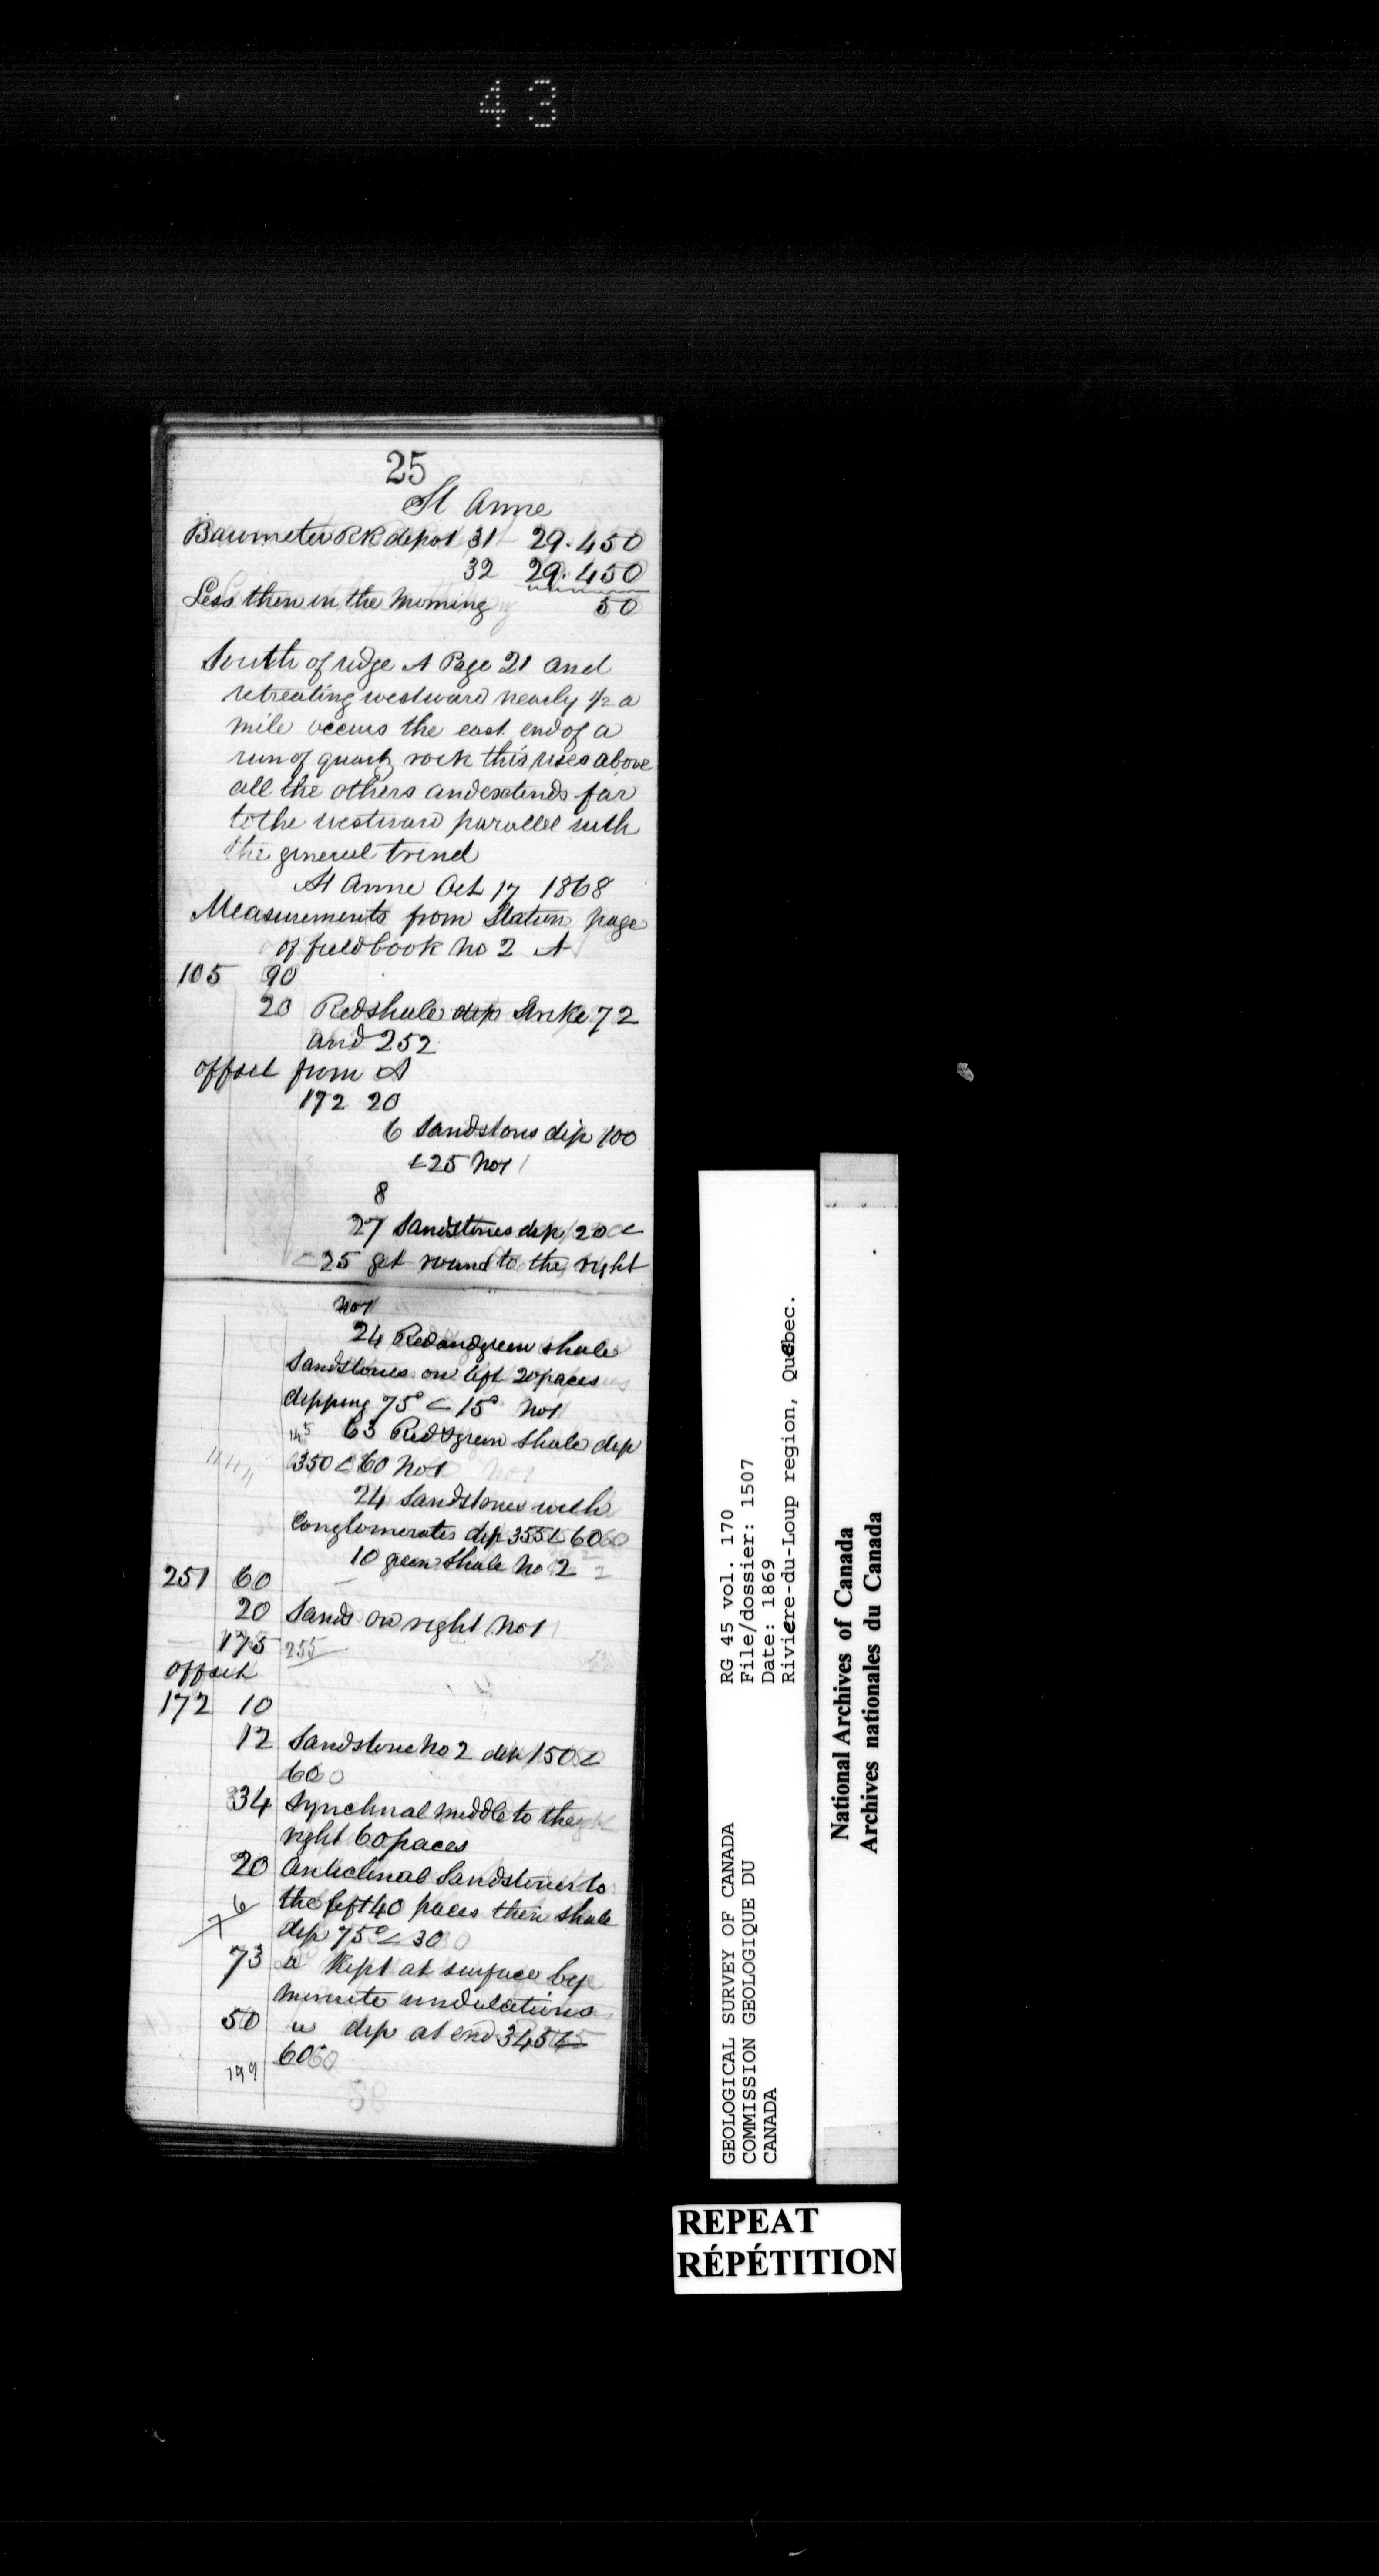 43
25
St Anne
Barometer RR depot 31 29.450
32 29.450
Less then in the morning 50
South of ridge A Page 21 and
retreating westward nearly 1/2 a
mile occurs the east end of a
run of quartz rock this rises above
all the others and extends far
to the westward parallel with
the general trend
St Anne Oct 17 1868
Measurements from Station page
of fieldbook no 2 A
105 90
20 Red shale dip Strike 72
and 252
offset from A
172 20
6 Sandstons dip 100
< 25 No 1
8
27 Sandstones dip 120
< 25 get round to the right
No 1
24 Red and green shale
Sandstones on left 20 paces
dipping 75° < 15° No 1
145 63 Red & green shale dip
350 < 60 No 1
24 Sandstones with
Conglomerates dip 355 < 60
10 green shale No 2
251 60
20 Sands on right No 1
175 255
offset
172 10
12 Sandstone No 2 dip 150 <
60
34 Synclinal middle to the
right 60 paces
20 Anticlinal Sandstones to
the left 40 paces then shale
76
dip 75° < 30
73 " Kept at surface by
minute undulations
50 " dip at end 345 <
60
199
GEOLOGICAL SURVEY OF CANADA
COMMISSION GEOLOGIQUE DU
CANADA
RG 45 vol. 170
File/dossier: 1507
Date: 1869
Riviere-du-Loup region, Quebec.
National Archives of Canada
Archives nationales du Canada
REPEAT
RÉPÉTITION